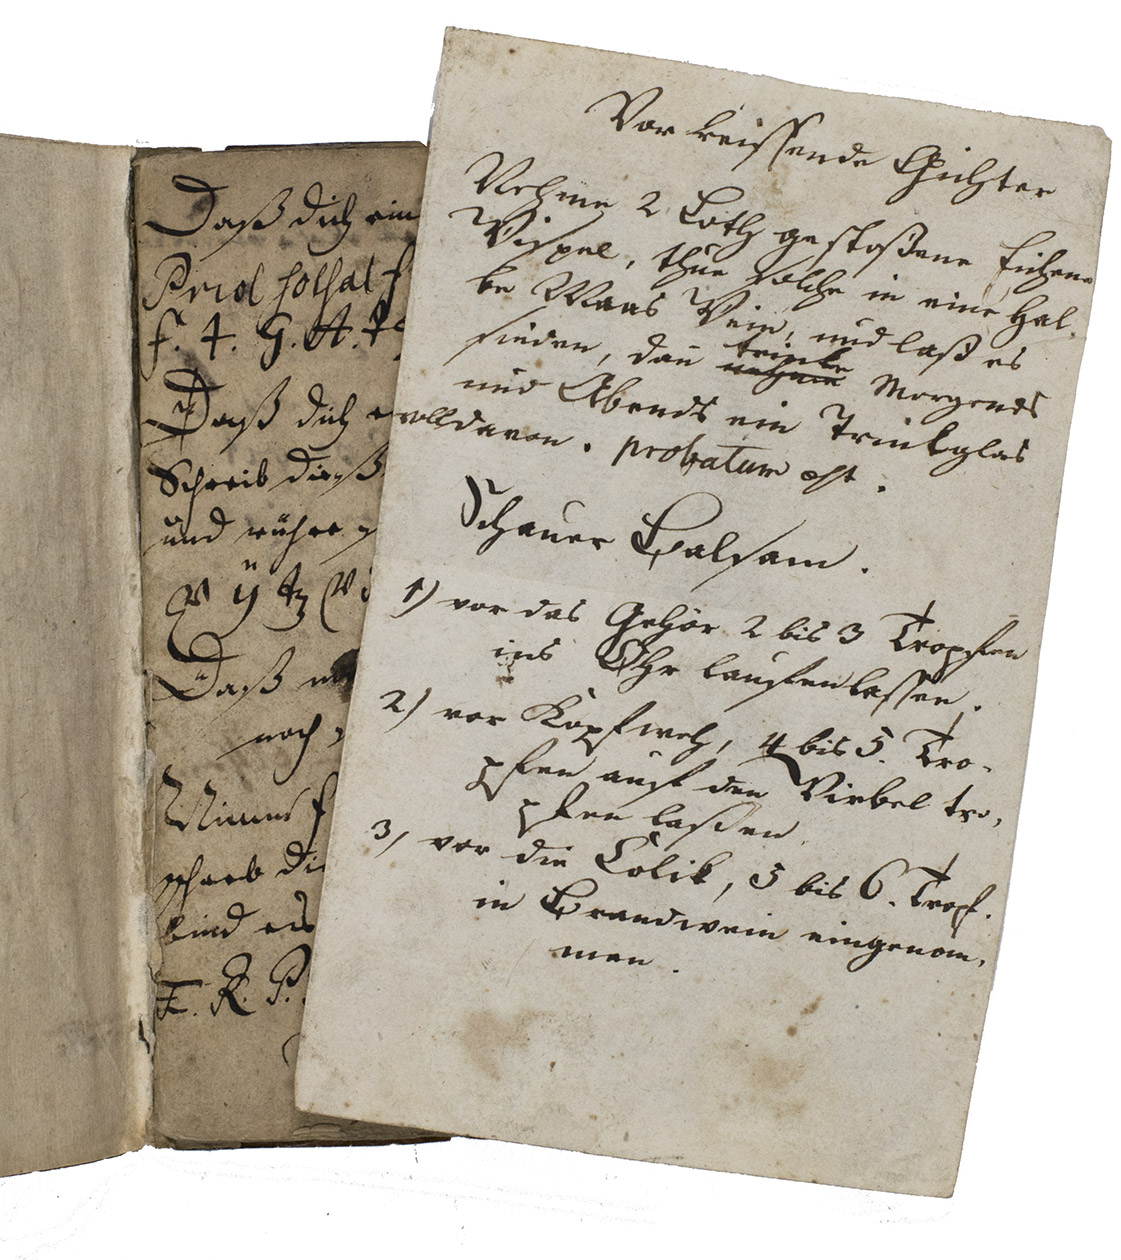 Daß dich ein
f. 4. G. A.
Daß dich
Schreib dieß
und rühre
Daß
noch
Nimm
bind es
F. R. P.
Vor reissende Gichter
Nehme 2 Loth gestoßene Eichene
Vispel, thue solche in eine Hal,
be Maas Wein, und laß es
sieden, dan nehme trinke Morgends
und Abends ein Trinkglas
voll davon. probatum est.
Schauer Balsam.
1) vor das Gehör 2 bis 3 Tropfen
ins Ohr lauffen lassen.
2) vor Kopfweh, 4 bis 5. Tro,
pfen auf den Virbel tro,
pfen laßen
3) vor die Colik, 5 bis 6. Tropf.
in Brandwein eingenom,
men.